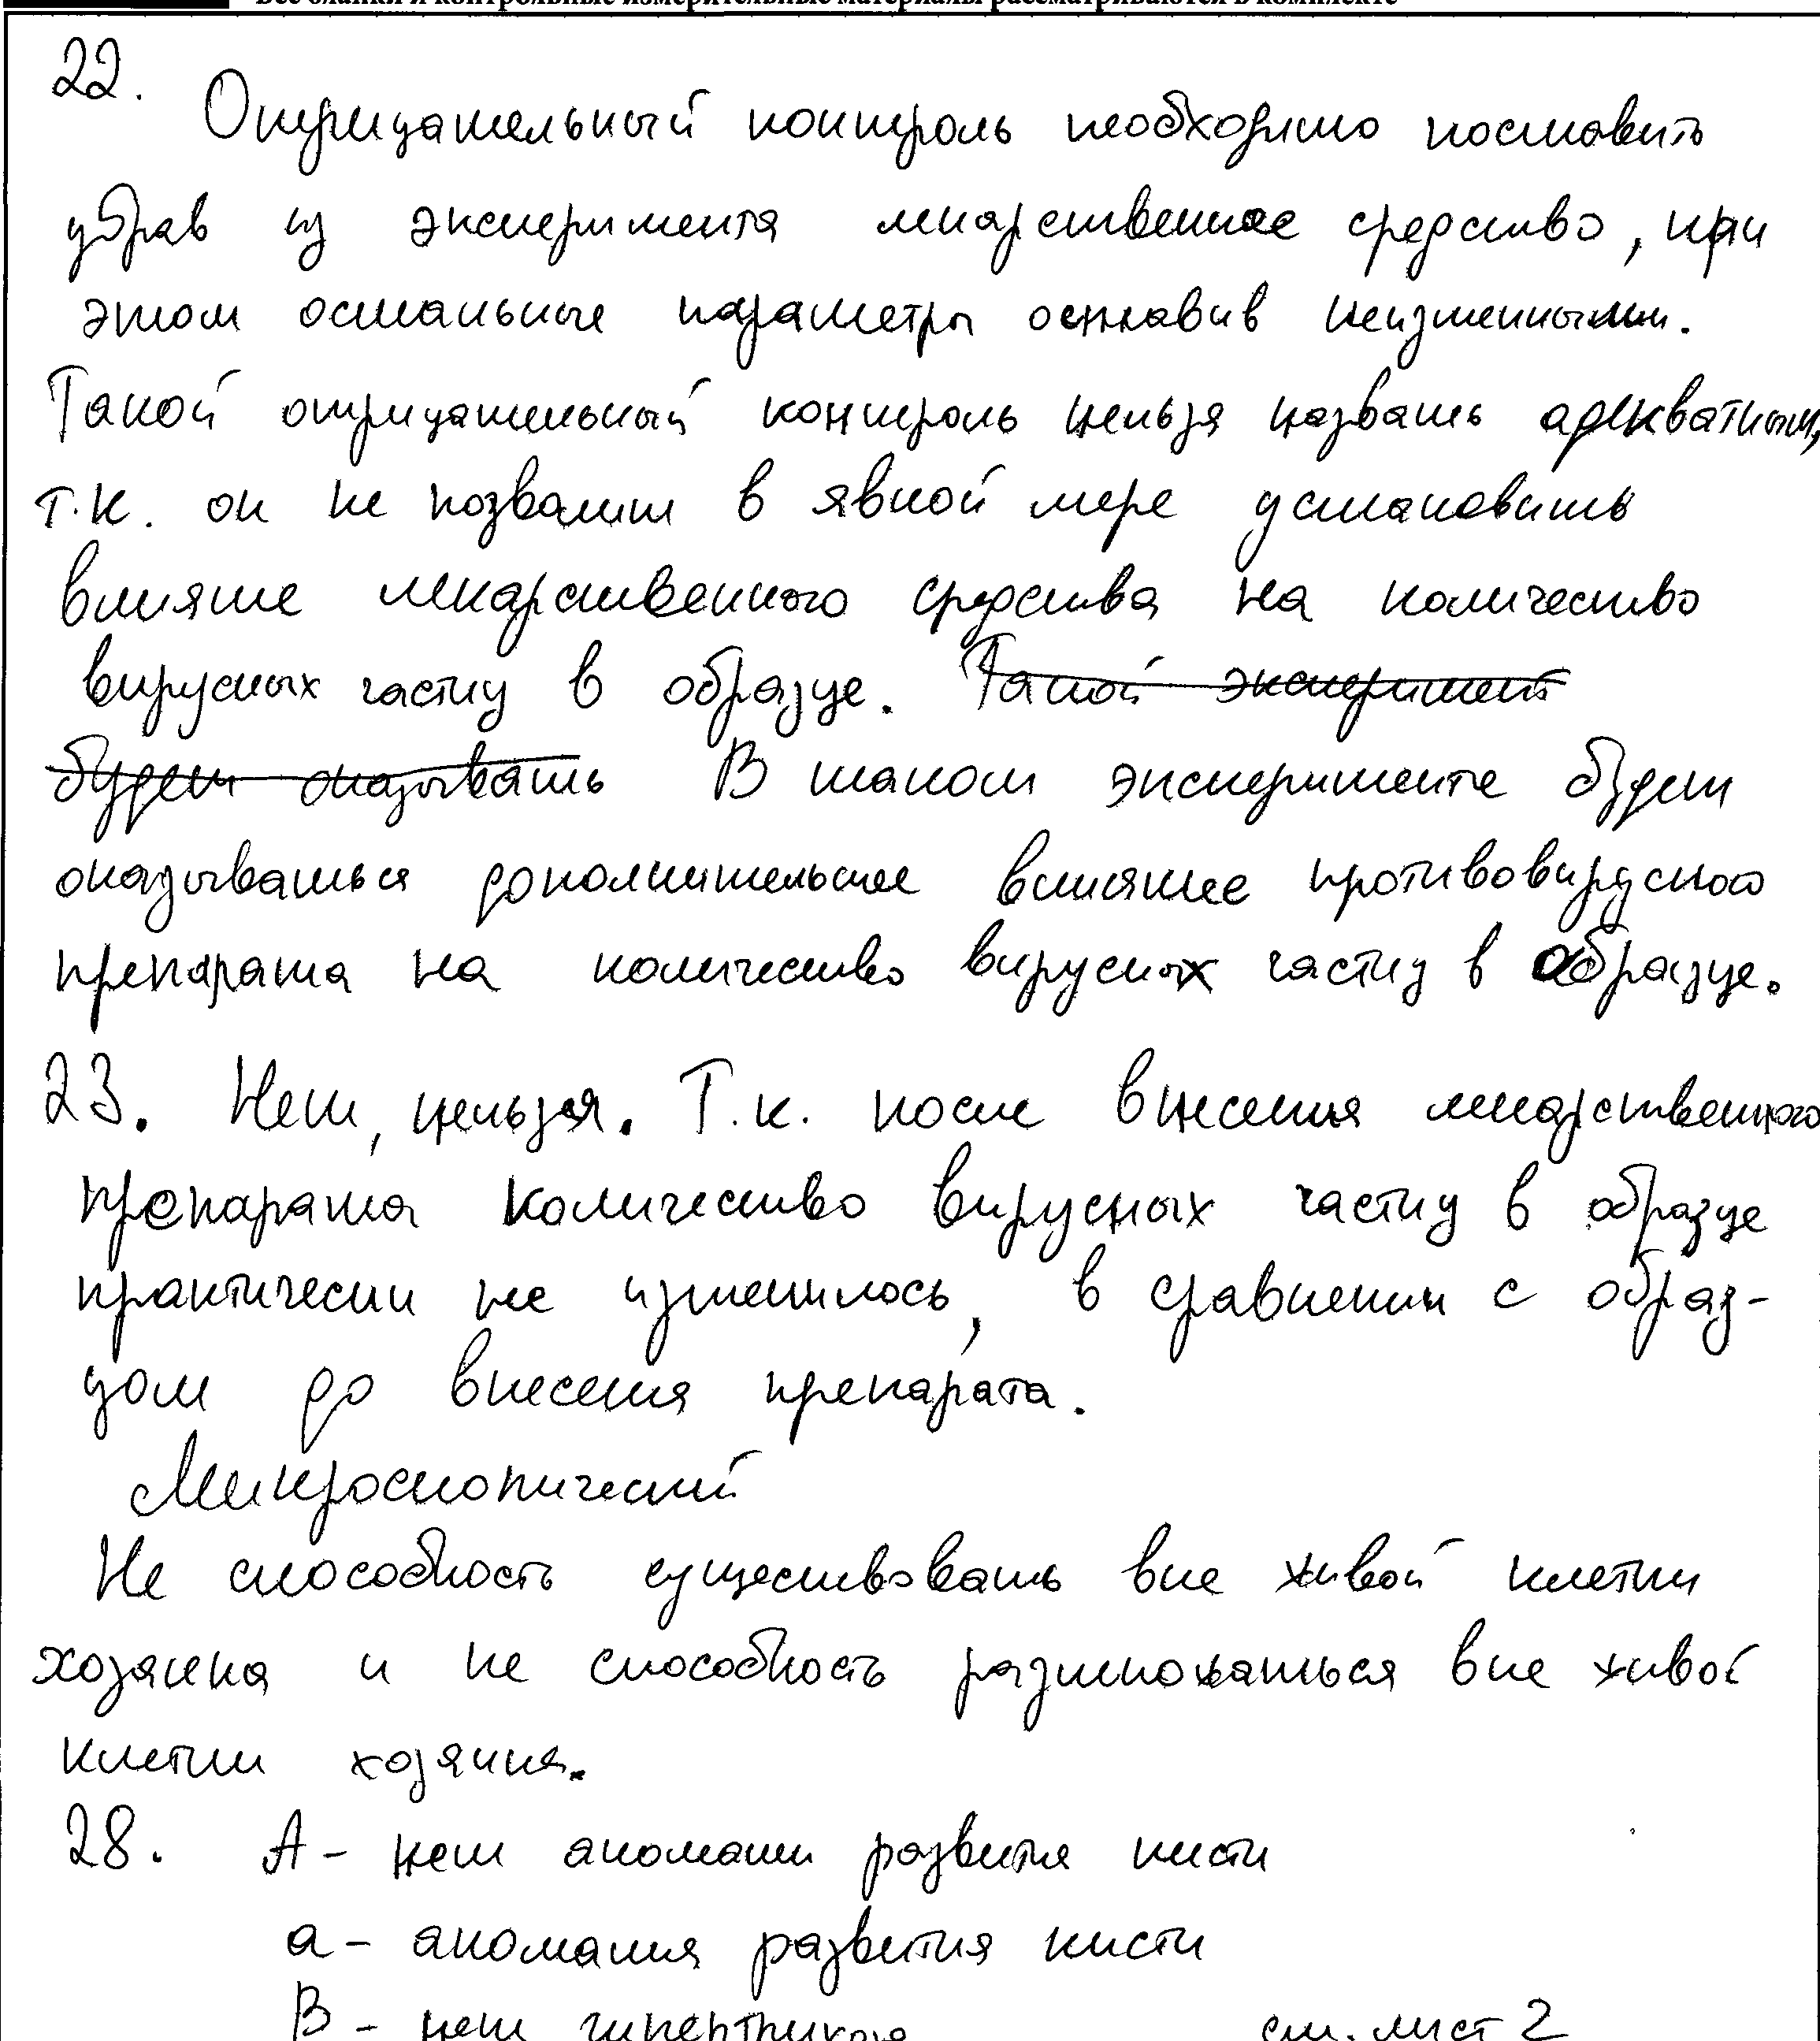 Все бланки и контрольные измерительные материалы рассматриваются в комплекте
22.
Отрицательный контроль необходимо поставить
убрав из эксперимента лекарственное средство, при
этом остальные параметры оставив неизменными.
Такой отрицательный контроль нельзя назвать адекватным,
т.к. он не позволит в явной мере установить
влияние лекарственного средства на количество
вирусных частиц в образце. Такой эксперимент
будет оказывать В таком эксперименте будет
оказываться дополнительное влияние противовирусного
препарата на количество вирусных частиц в образце.
23. Нет, нельзя. Т.к. после внесения лекарственного
препарата количество вирусных частиц в образце
практически не изменилось, в сравнении с образ-
цом до внесения препарата.
Микроскопический
Не способность существовать вне живой клетки
хозяина и не способность размножаться вне живой
клетки хозяина.
28. А - нет аномалии развития кисти
а - аномалия развития кисти
В - нет гипертрихоза см. лист 2